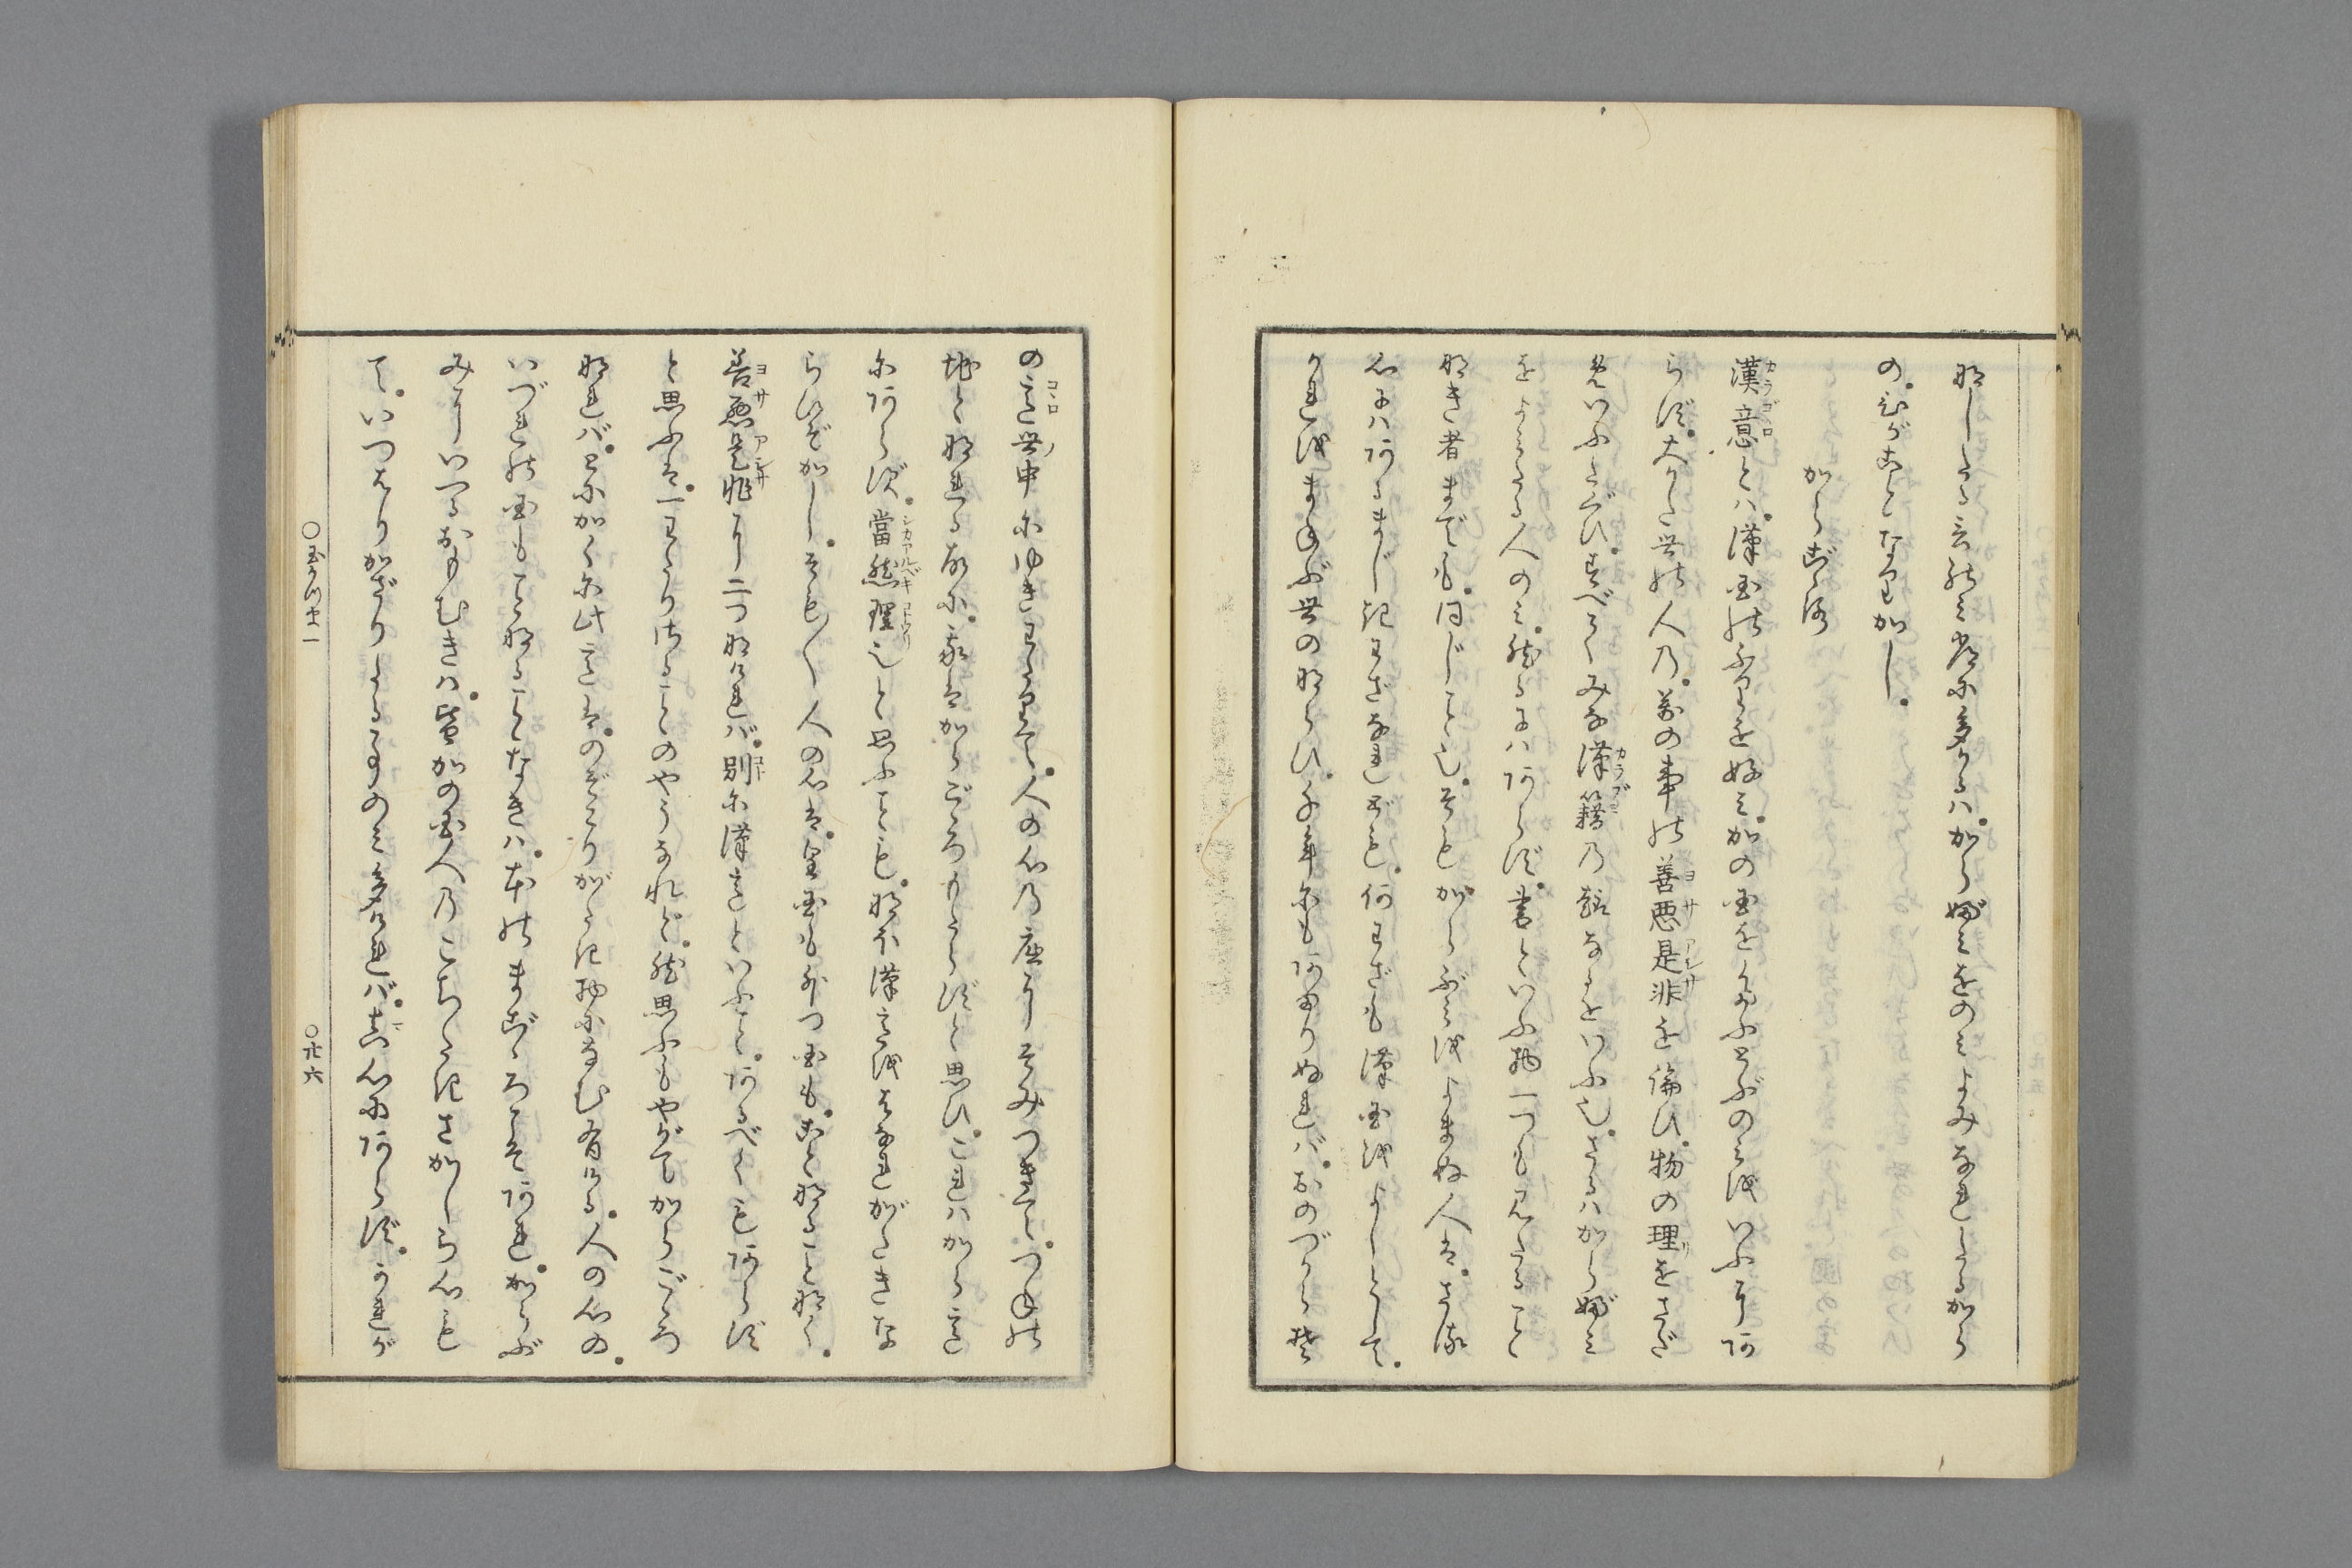 なしたる言のみ常に多かるは、からぶみをのみよみなれたるから
の、ひがことなりかし、
からごゝろ
漢意とハ、漢国のふりを好ミ、かの国をたふとぶのミをいふにあ
らず、大かた世の人の、萬の事の善悪是非を論ひ、物の理をさだ
めいふたぐひ、すべてみな漢籍の趣なるをいふ也、さるハからぶミ
をよミたる人のミ、然るにハあらず、書といふ物一つも見たること
なき者までも、同じこと也、そもからぶミをよまぬ人は、さる
心にハあるまじきわざなれども、何わざも漢国をよしとして、
かれをまねぶ世のならひ、千年にもあまりぬれバ、おのづからそ
の意世ノ中にゆきわたりて、人の心の底にそみつきて、つねの
地となれる故に、我はからごゝろもたらずと思ひ、これハから意
にあらず、當然理也と思ふことも、なほ漢意をはなれがたきな
らひぞかし、そも〱人の心は、皇国も外つ国も、ことなることなく、
善悪是非に二つなけれバ、別に漢意といふこと、あるべくもあらず
と思ふは、一わたりさることのやうなれど、然思ふもやがてからごゝろ
なれバ、とにかくに此意は、のぞこりがたき物になむ有ける、人の心の、
いづれの国もことなることなきハ、本のまごゝろこそあれ、からぶ
みにいへるおもむきハ、皆かの国人のこちたきさかしら心も
て、いつはりかざりたる事のミ多けれバ、真心にあらず、かれが
〇玉かつま一
〇廿六